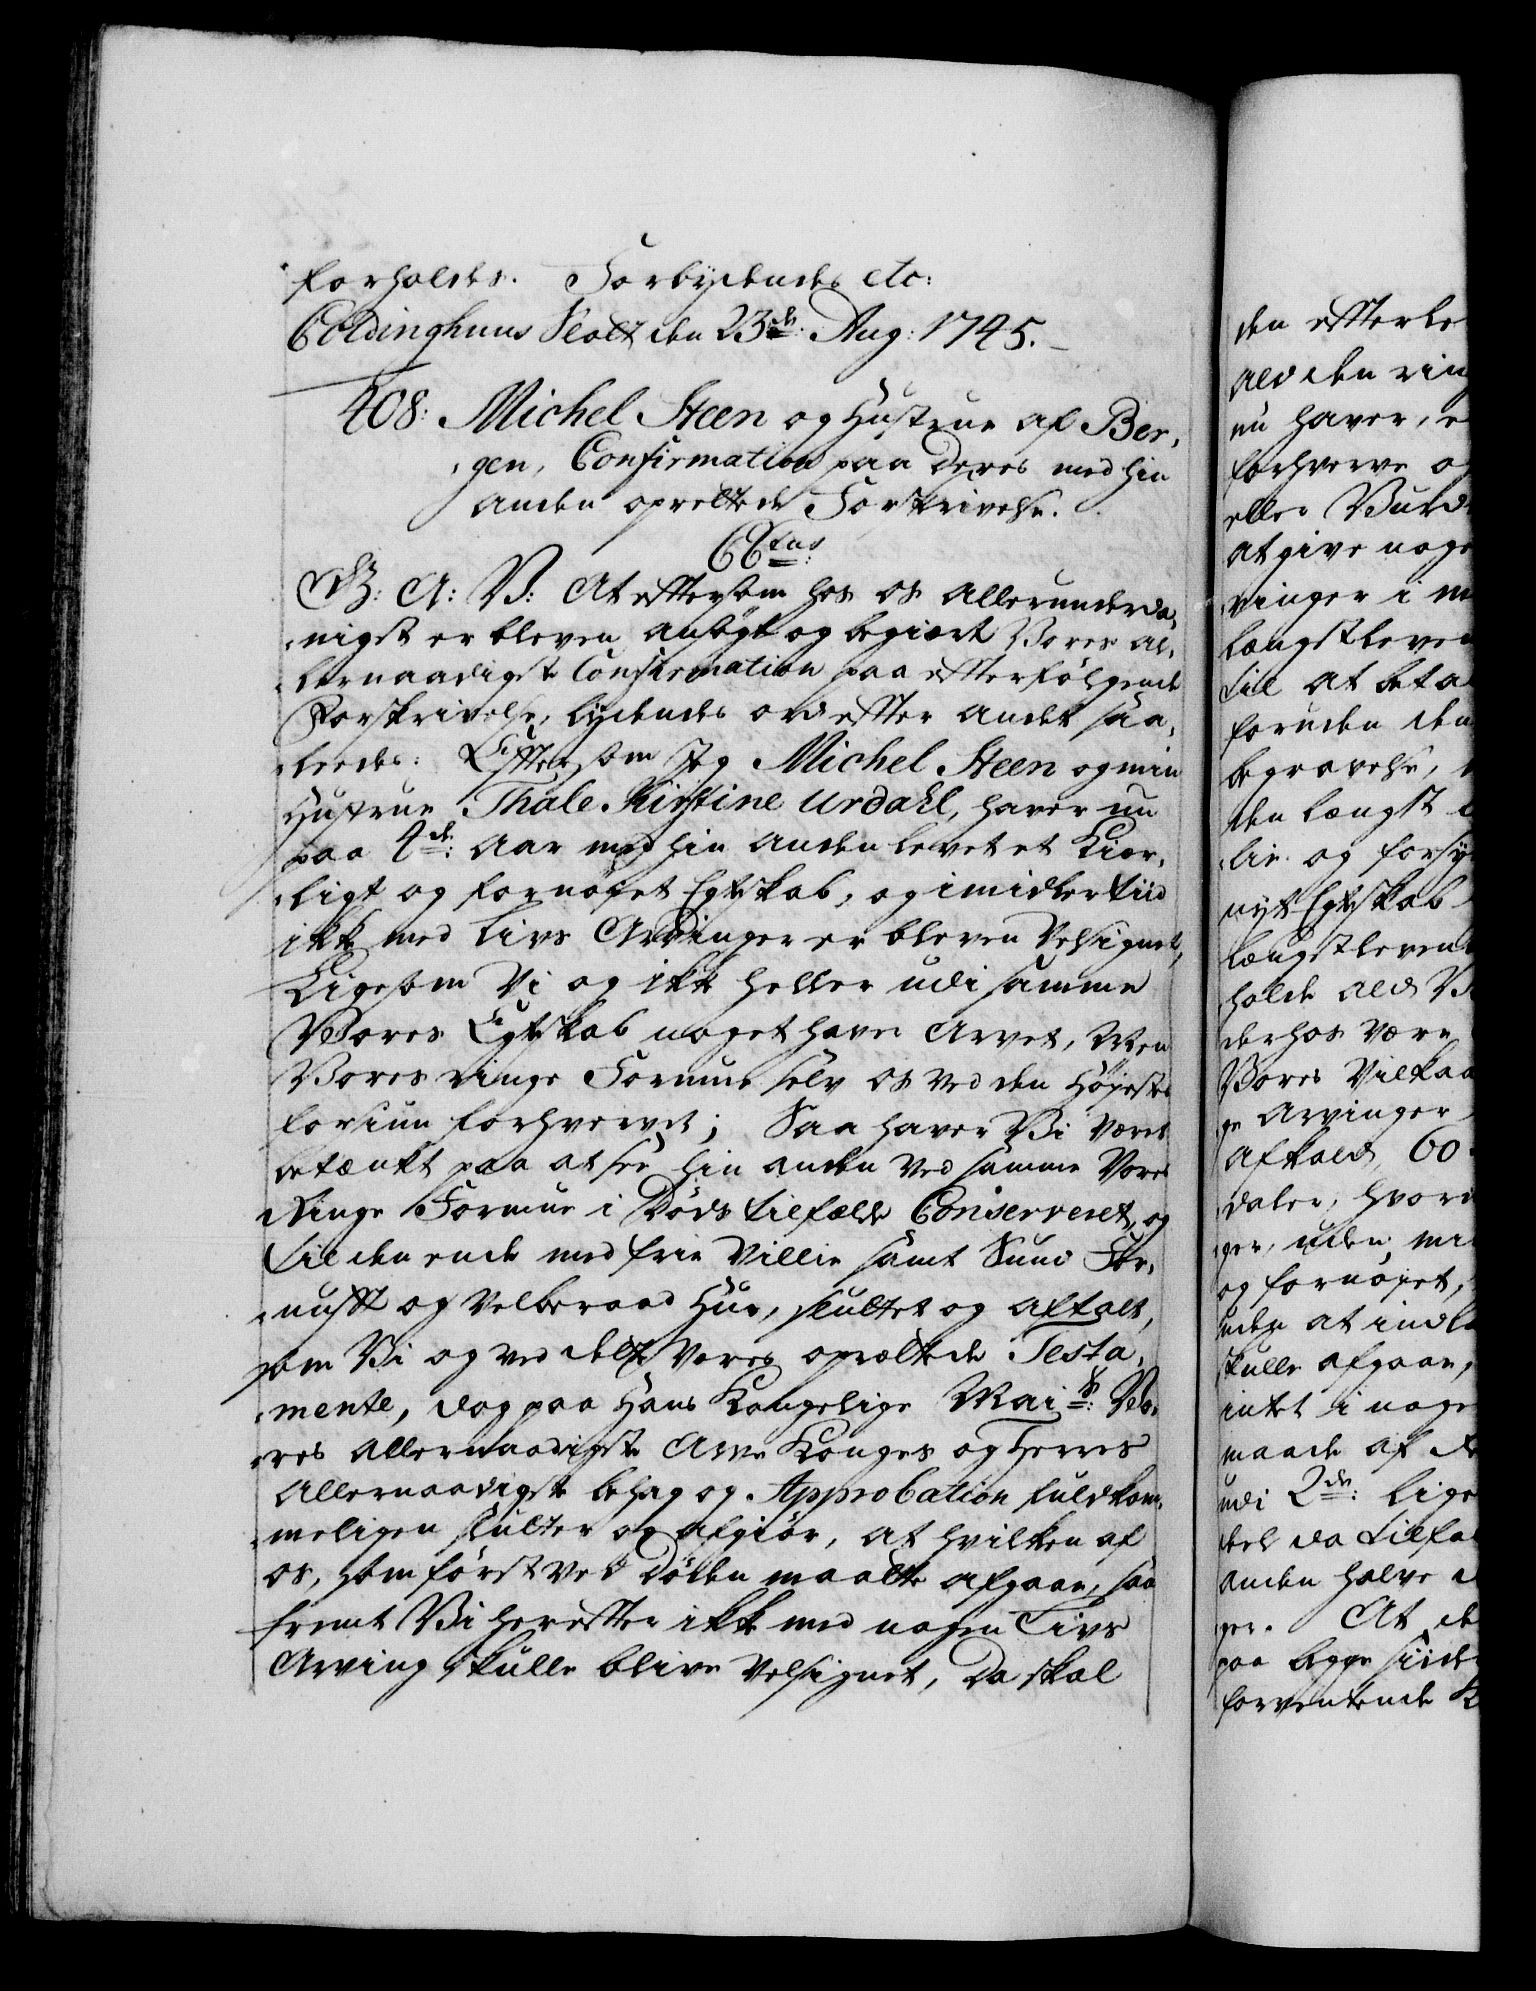 forholdes. Forbydendes etc:
Coldinghuus Slott den 23de: Aug: 1745.
408: Michel Steen og Hustrue af Ber,
,gen, Confirmation paa deres med hin
anden oprettede Forskrivelse.
C6tus:
G: A: V: At eftersom hos os allerunderda,
,nigst er bleven ansøgt og begiært Vores al,
,lernaadigste Confirmation paa efterfølgende
Forskrivelse, lydendes ord efter andet saa,
,leedes: Eftersom Jeg Michel Steen og min
Hustrue Thale Kirstine Urdahl, haver nu
paa 4de: Aar med hin anden levet et Kiær,
,ligt og fornøyet Egteskab, og imidlertiid
ikke med Livs Arvinger er bleven velsignet,
Ligesom Vi og ikke heller udi samme
Vores Egteskab noget haver Arvet, Men
Vores ringe Formue selv os ved den Høyestes
forsiun forhvervet; Saa haver Vi været
betænkt paa at see hin anden ved samme Vores
Ringe Formue i Døds tilfælde Conserveret, og
til den ende med frie Villie samt Sund For,
,nufft og velberaad Hue, sluttet og aftalt,
som Vi og ved dette Vores oprettede Testa,
,mente, dog paa Hans Kongelige Mai:ts Vo,
,res allernaadigste Arve Konges og Herres
Allernaadigste behag og Approbation fuldkom,
,meligen slutter og afgiør, at hvilken af
os, som først ved Døden maatte afgaae, saa
fremt Vi herefter ikke med nogen Livs
Arving skulle blive velsignet, Da skal
den efterle
ald den ring
nu haver, e
forhverve og
eller Bund
at give noge
,vinger i m
længstleven
til at beta
foruden den
begravelse,
den længst
,lie og forsy
nyt Egteskab
længstleven
holde ald
derhos være
Vores Vilkaa
,ge Arvinger
Afkald, 60
,daler, hvor
,ger, uden mi
og fornøyet,
uden at indl
skulle afgaae,
intet i noge
maade af
udi 2de: lige
deel da tilfa
anden halve
,ger. At de
paa begge siider
forventende K